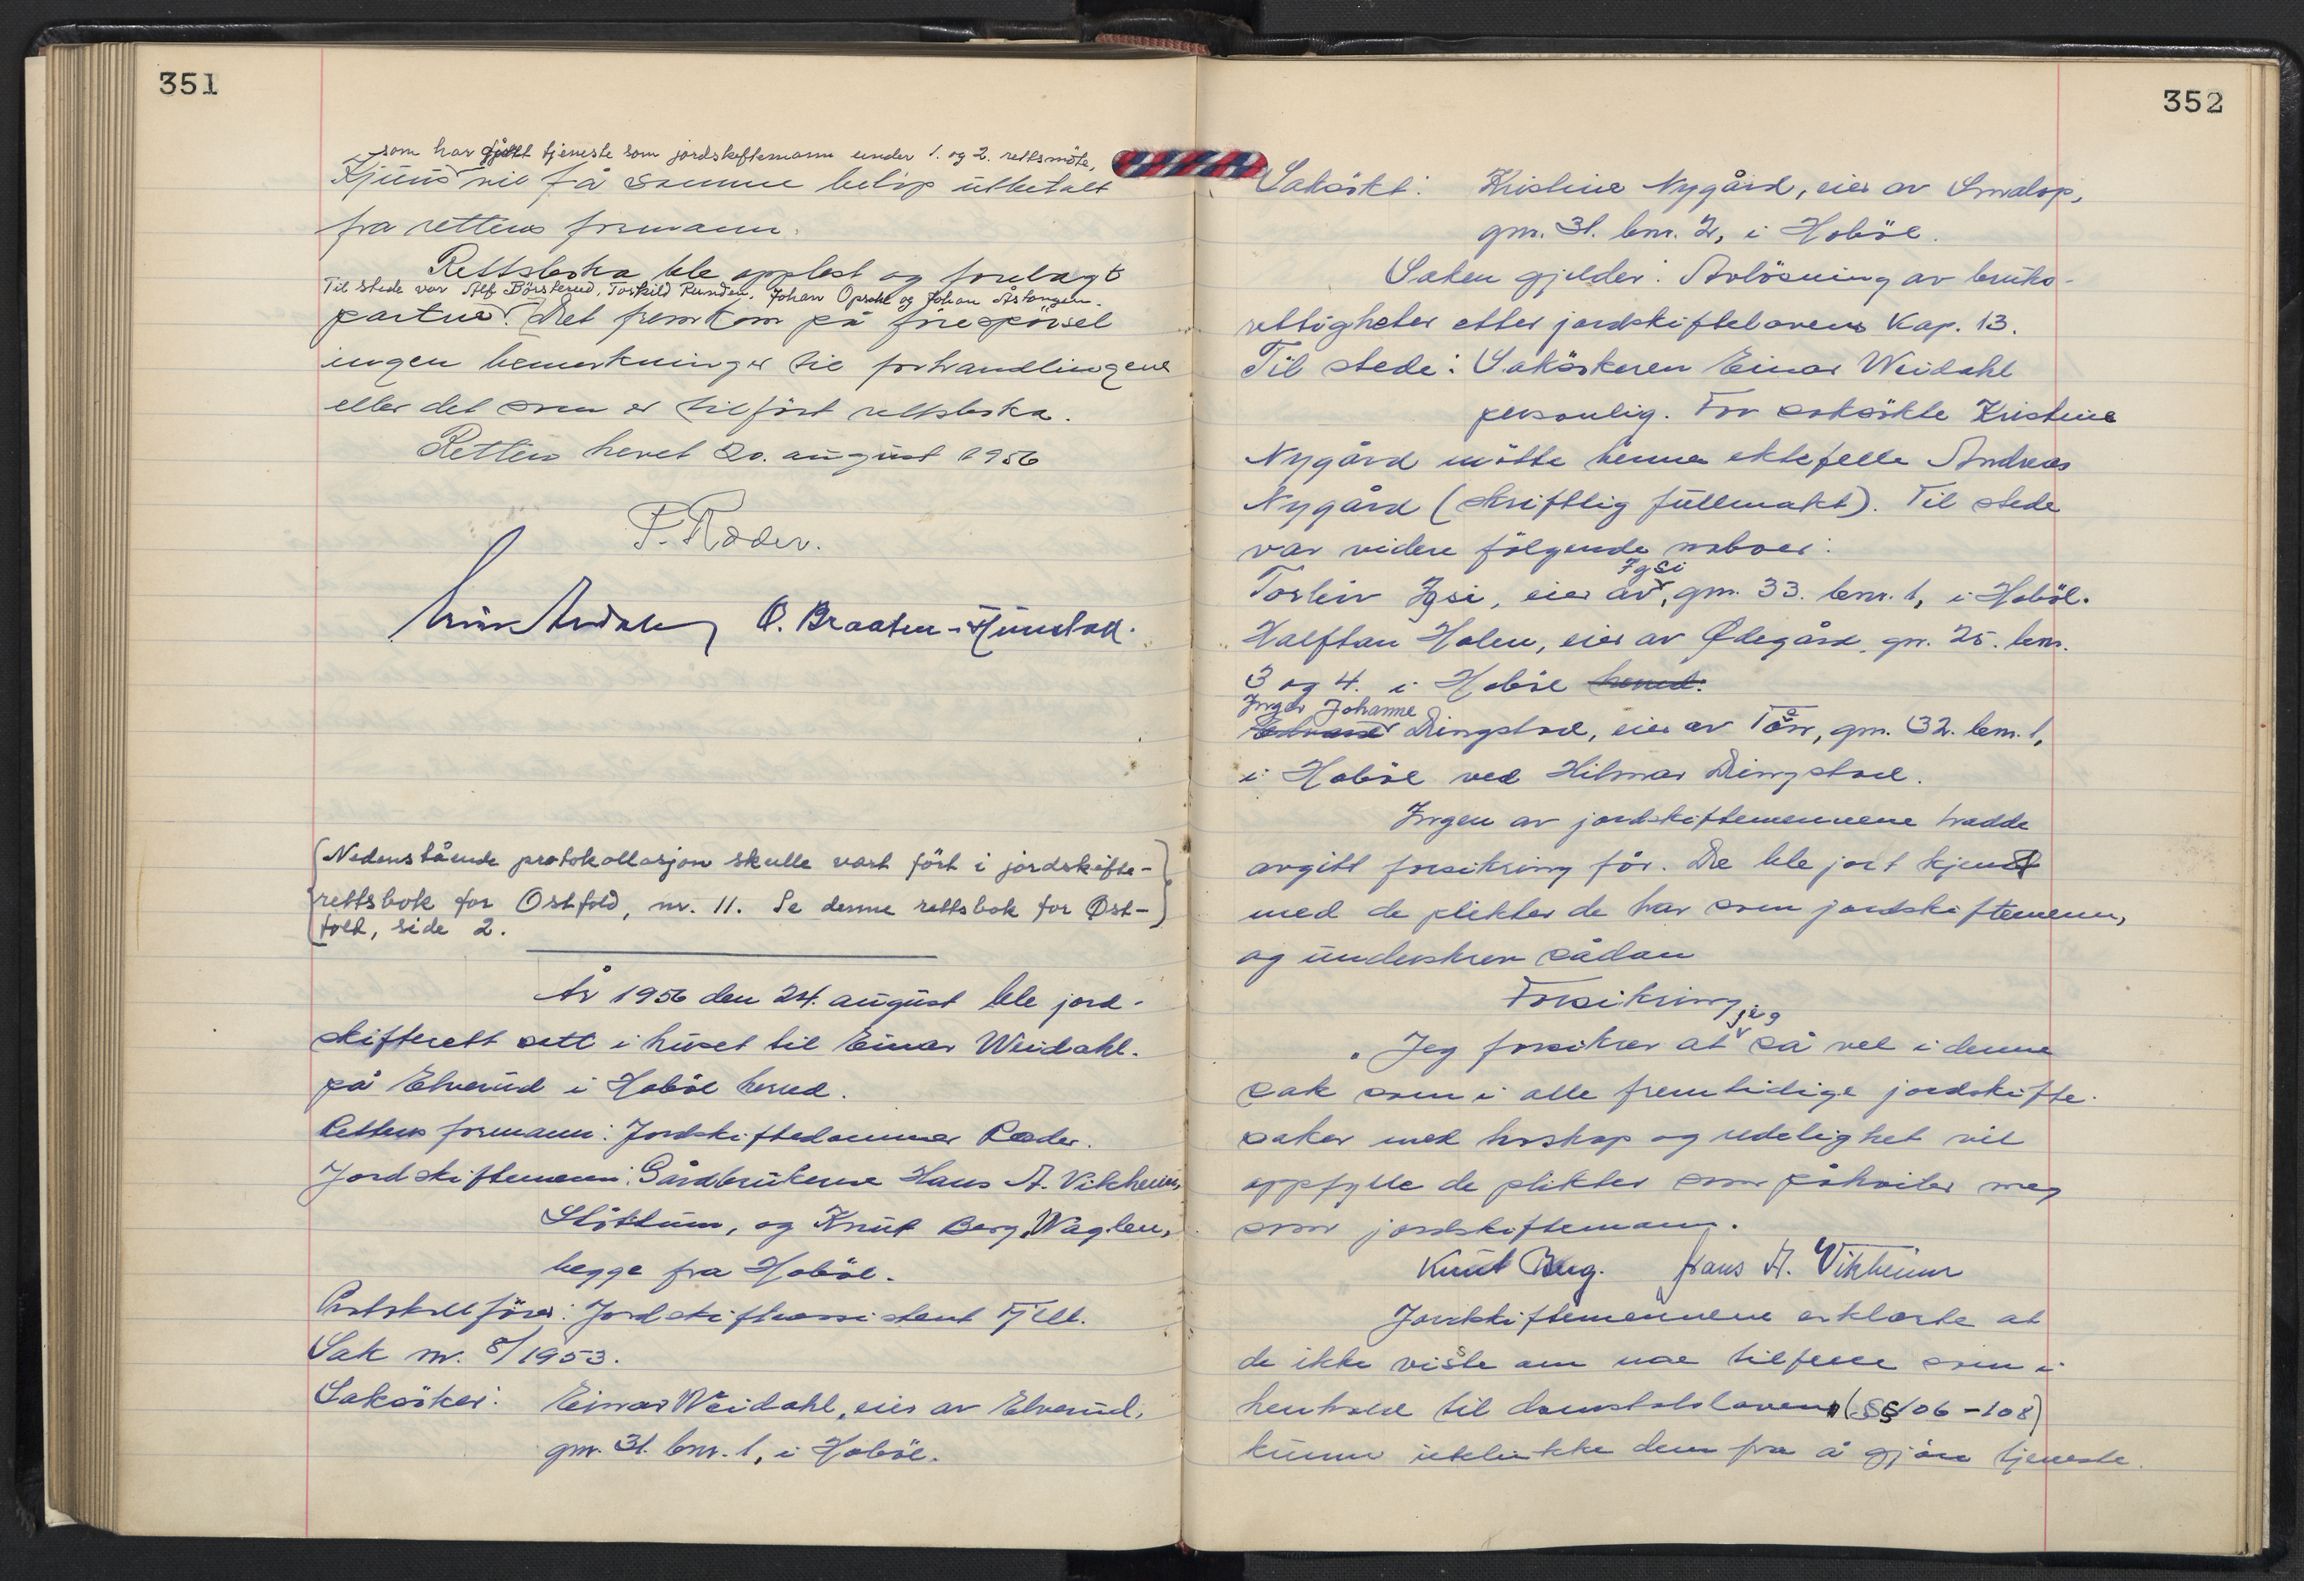 351
som har gjort tjeneste som jordskiftemann under 1. og 2. rettsmöte,
Kjuus vil få samme belöp utbetalt
fra rettens formann.
Rettsboka ble opplest og forelagt
Til stede var Alf Börsterud, Torkild Runden, Johan Opsahl og Johan Åstangen.
partene. Det fremkom på forespörsel
ingen bemerkninger til forhandlingene
eller det som er tilfört rettsboka.
Retten hevet 20. august 1956
P. Ræder.
O. Braaten-Hunstad.
(Nedenstående protokollasjon skulle vært fört i jordskifte-
rettsbok for Østfold, nr. 11. Se denne rettsbok for Øst-
fold, side 2.)
År 1956 den 24. august ble jord-
skifterett satt i huset til Einar Weidahl.
på Elverud i Hoböl herred.
Rettens formann: Jordskiftedommer Ræder.
Jordskiftemenn: Gårdbrukerne Hans A. Vikheim,
Slöttum, og Knut Berg, Waglen,
begge fra Hoböl.
Protokollförer: Jordskifteassistent Fjeld.
Sak nr. 8/1953.
Saksöker: Einar Weidahl, eier av Elverud,
gnr. 31. bnr. 1, i Hoböl.
352
Saksökt: Kristine Nygård, eier av Smalop,
gnr. 31. bnr. 2, i Hoböl.
Saken gjelder: Avlösning av bruks-
rettigheter etter jordskiftelovens kap. 13.
Til stede: Saksökeren Einar Weidahl
personlig. For saksökte Kristine
Nygård mötte hennes ektefelle Andreas
Nygård (skriftlig fullmakt). Til stede
var videre fölgende naboer:
Igsi
Torleiv Igsi, eier av, gnr. 33. bnr. 1, i Hoböl.
Halftan Holen, eier av Ødegård, gnr. 25. bnr.
3 og 4. i Hoböl herred.
Inger Johanne
Dingstad, eier av Tån, gnr. 32. bnr. 1,
i Hoböl ved Hilmar Dingstad.
Ingen av jordskiftemennene hadde
avgitt forsikring för. De ble gjort kjendt
med de plikter de har som jordskiftemenn,
og underskrev sådan
Forsikring:
jeg
"Jeg forsikrer at så vel i denne
sak som i alle fremtidige jordskifte-
saker med troskap og redelighet vil
oppfylle de plikter som påhviler meg
som jordskiftemann.
Knut Berg. Hans A. Vikheim
Jordskiftemennene erklærte at
de ikke visste om noe tilfelle som i
henhold til domstolsloven (§§ 106-108)
kunne utelukke dem fra å gjöre tjeneste.